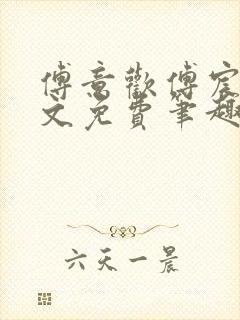 傅意歡傅宸
文免費筆趣
六天一晨